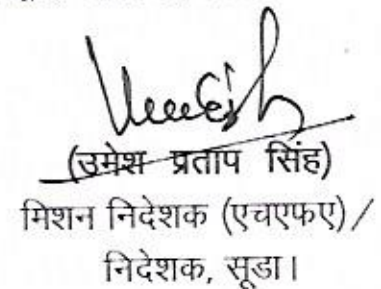 Umesh
(उमेश प्रताप सिंह)
मिशन निदेशक (एचएफए)/
निदेशक, सूडा।